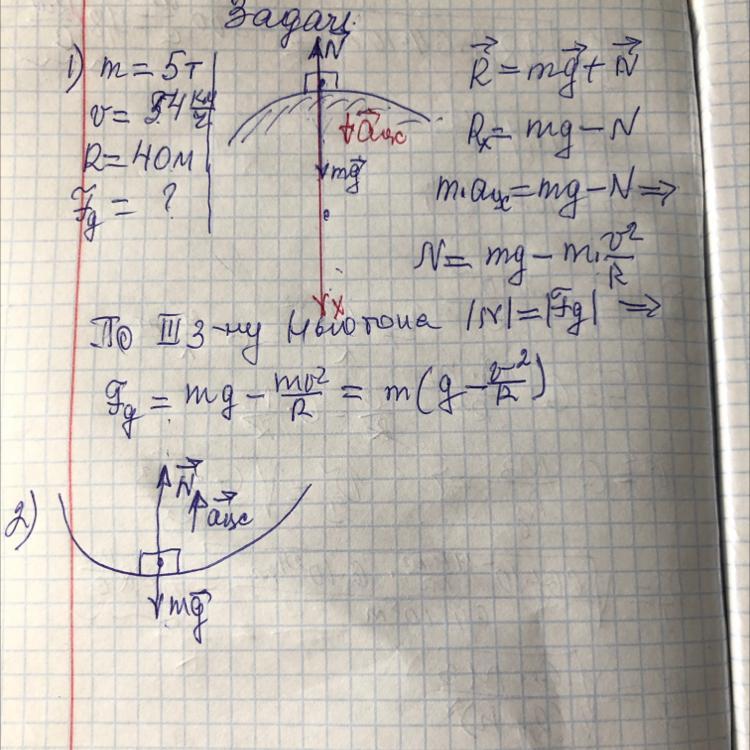 Задачи
1) m = 5т
v = 54 км/ч
R = 40м
Fg = ?
N⃗
a⃗цс
mg⃗
x
R⃗ = mg⃗ + N⃗
Rx = mg - N
m·aцс = mg - N ⇒
N = mg - m·v²/R
По III з-ну Ньютона |N| = |Fg| ⇒
Fg = mg - mv²/R = m(g - v²/R)
2)
N⃗
a⃗цс
mg⃗